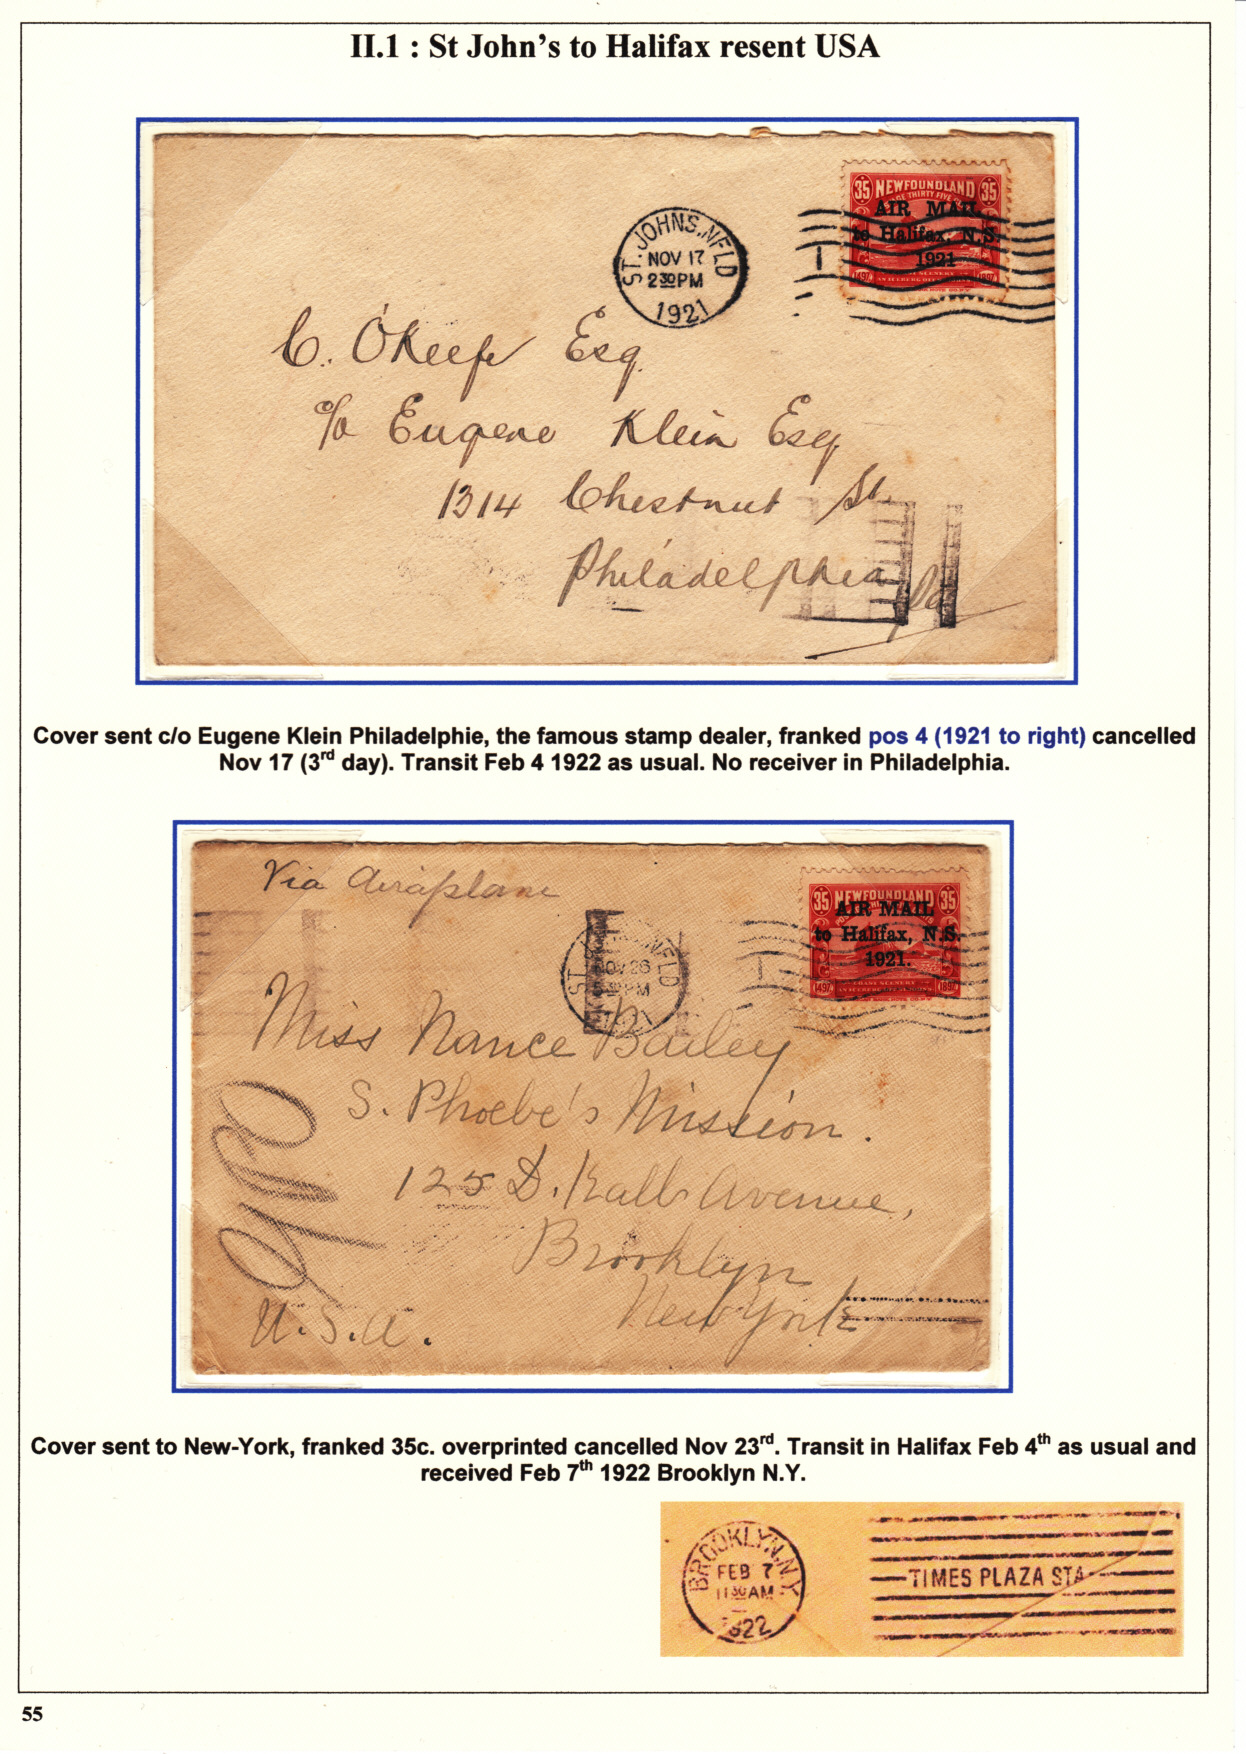 II.1 : St John's to Halifax resent USA
ST. JOHNS, NFLD
NOV 17
2 30 PM
1921
35 NEWFOUNDLAND 35
AIR MAIL
to Halifax, N.S.
1921
1497 1897
C. O'Keefe Esq.
c/o Eugene Klein Esq
1314 Chestnut St.
Philadelphia
Pa
Cover sent c/o Eugene Klein Philadelphie, the famous stamp dealer, franked pos 4 (1921 to right) cancelled
Nov 17 (3rd day). Transit Feb 4 1922 as usual. No receiver in Philadelphia.
Via Airaplane
NFLD
35 NEWFOUNDLAND 35
AIR MAIL
to Halifax, N.S.
1921.
1497 1897
Miss Nance Bailey
S. Phoebe's Mission.
125 D. Kalb Avenue,
Brooklyn
New York
U.S.A.
Cover sent to New-York, franked 35c. overprinted cancelled Nov 23rd. Transit in Halifax Feb 4th as usual and
received Feb 7th 1922 Brooklyn N.Y.
BROOKLYN, N.Y.
FEB 7
11 30 AM
1922
TIMES PLAZA STA.
55